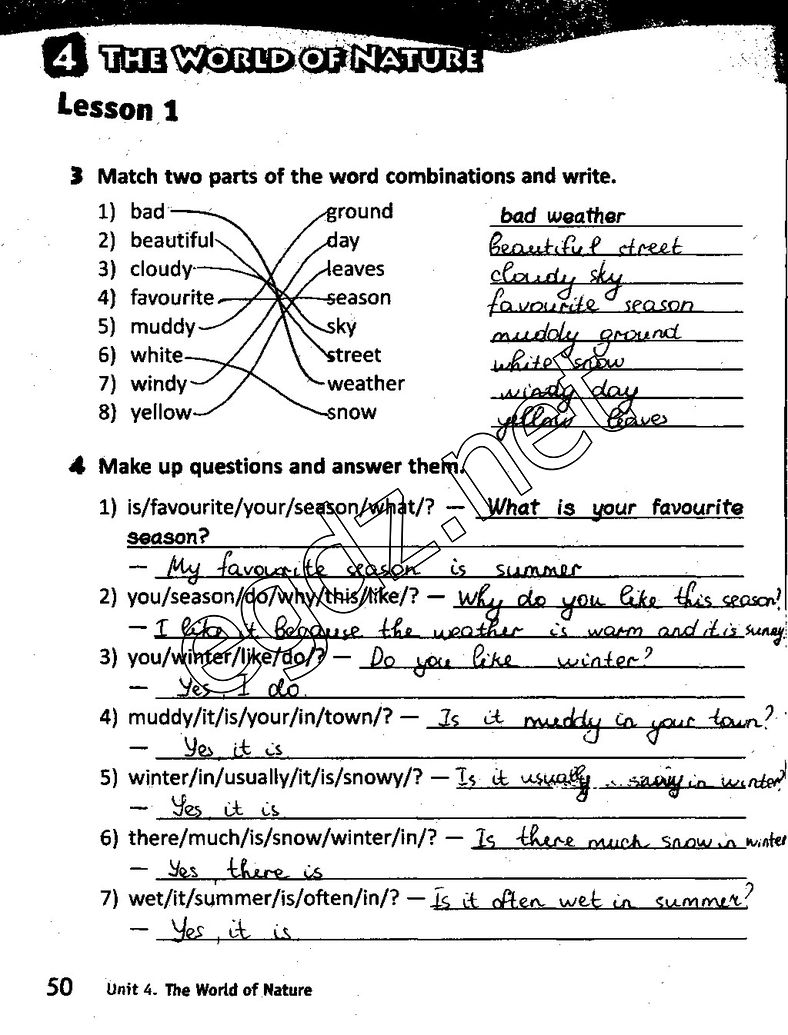 4 THE WORLD OF NATURE
Lesson 1
3 Match two parts of the word combinations and write.
1) bad ground bad weather
2) beautiful day beautiful street
3) cloudy leaves cloudy sky
4) favourite season favourite season
5) muddy sky muddy ground
6) white street white snow
7) windy weather windy day
8) yellow snow yellow leaves
4 Make up questions and answer them.
1) is/favourite/your/season/what/? — What is your favourite
season?
— My favourite season is summer
2) you/season/do/why/this/like/? — Why do you like this season?
— I like it because the weather is warm and it is sunny
3) you/winter/like/do/? — Do you like winter?
— Yes, I do
4) muddy/it/is/your/in/town/? — Is it muddy in your town?
— Yes it is
5) winter/in/usually/it/is/snowy/? — Is it usually in winter?
— Yes, it is
6) there/much/is/snow/winter/in/? — Is there much snow in winter
— Yes, there is
7) wet/it/summer/is/often/in/? — Is it often wet in summer?
— Yes, it is
egdz.net
50 Unit 4. The World of Nature